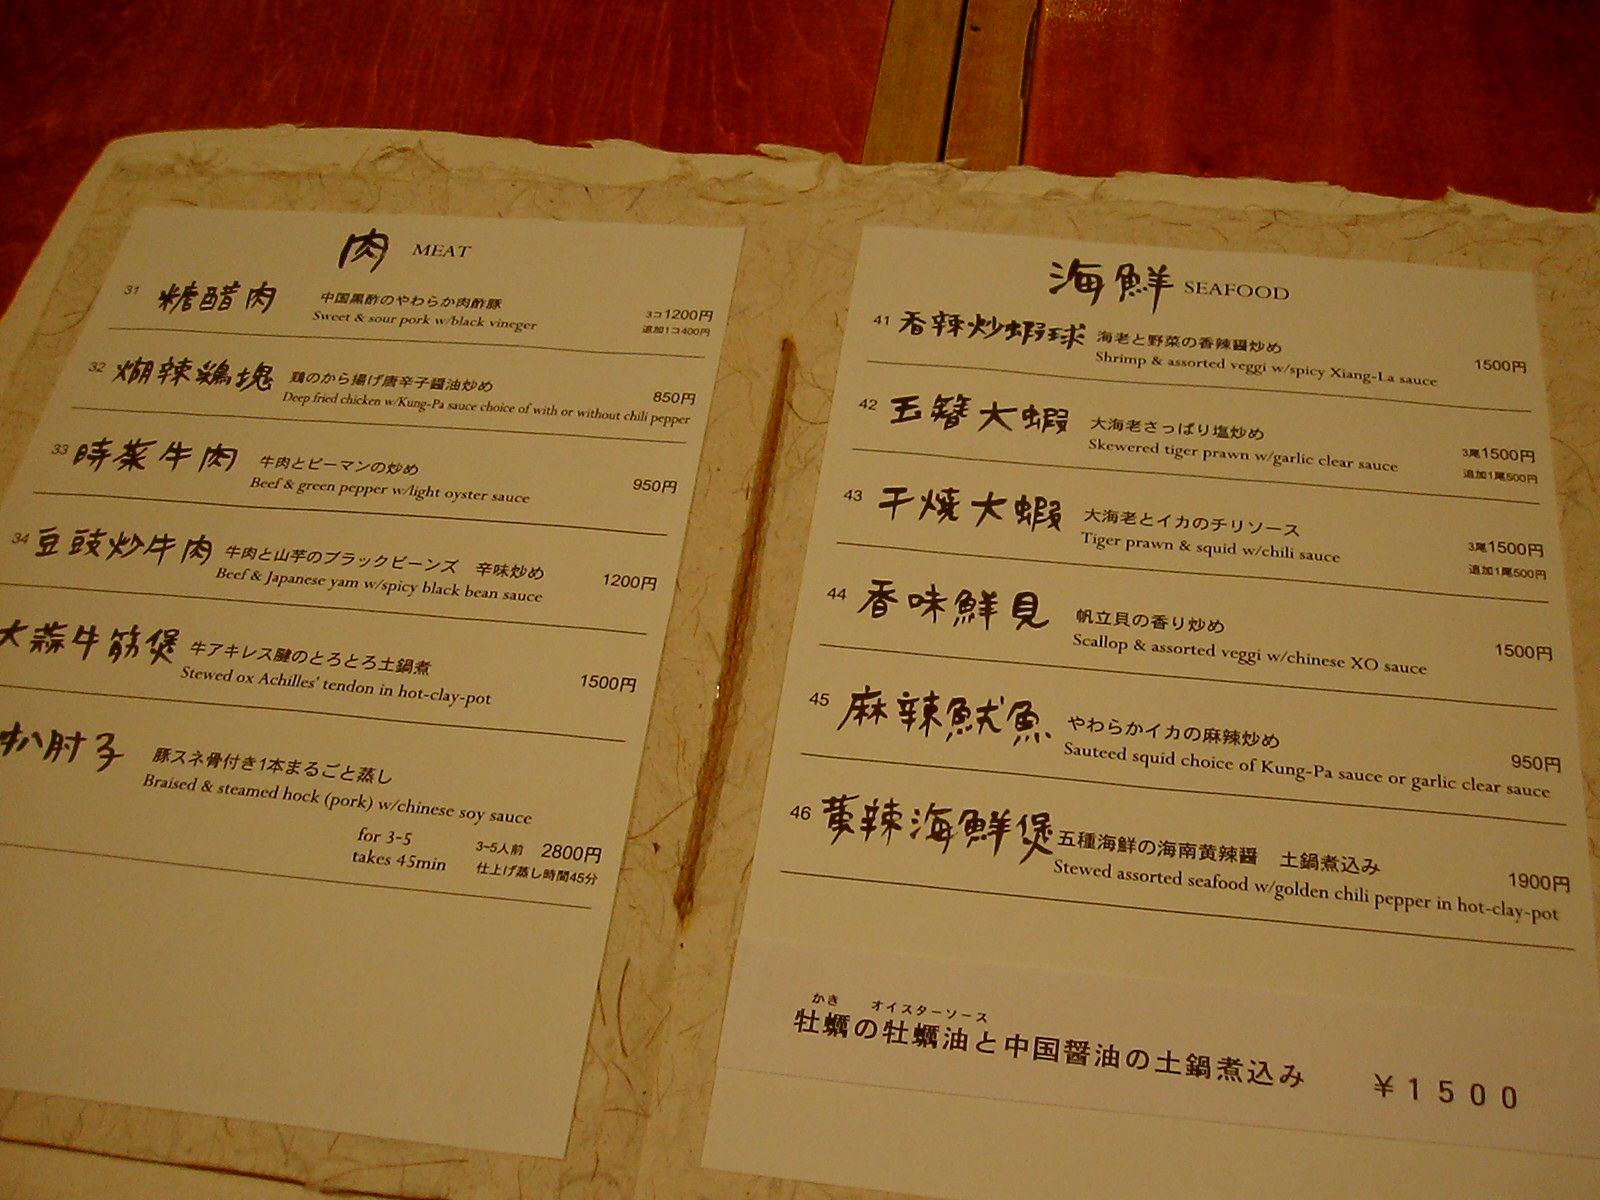 肉 MEAT
31 糖醋肉 中国黒酢のやわらか肉酢豚
Sweet & sour pork w/black vineger
3コ1200円
追加1コ400円
32 煳辣鶏塊 鶏のから揚げ唐辛子醤油炒め
Deep fried chicken w/Kung-Pa sauce choice of with or without chili pepper
850円
33 時菜牛肉 牛肉とピーマンの炒め
Beef & green pepper w/light oyster sauce
950円
34 豆豉炒牛肉 牛肉と山芋のブラックビーンズ 辛味炒め
Beef & Japanese yam w/spicy black bean sauce
1200円
大蒜牛筋煲 牛アキレス腱のとろとろ土鍋煮
Stewed ox Achilles' tendon in hot-clay-pot
1500円
扒肘子 豚スネ骨付き1本まるごと蒸し
Braised & steamed hock (pork) w/chinese soy sauce
for 3-5
takes 45min
3~5人前 2800円
仕上げ蒸し時間45分
海鮮 SEAFOOD
41 香辣炒蝦球 海老と野菜の香辣醤炒め
Shrimp & assorted veggi w/spicy Xiang-La sauce
1500円
42 玉簪大蝦 大海老さっぱり塩炒め
Skewered tiger prawn w/garlic clear sauce
3尾1500円
追加1尾500円
43 干燒大蝦 大海老とイカのチリソース
Tiger prawn & squid w/chili sauce
3尾1500円
追加1尾500円
44 香味鮮貝 帆立貝の香り炒め
Scallop & assorted veggi w/chinese XO sauce
1500円
45 麻辣魷魚 やわらかイカの麻辣炒め
Sauteed squid choice of Kung-Pa sauce or garlic clear sauce
950円
46 黄辣海鮮煲 五種海鮮の海南黄辣醤 土鍋煮込み
Stewed assorted seafood w/golden chili pepper in hot-clay-pot
1900円
かき オイスターソース
牡蠣の牡蠣油と中国醤油の土鍋煮込み ￥1500